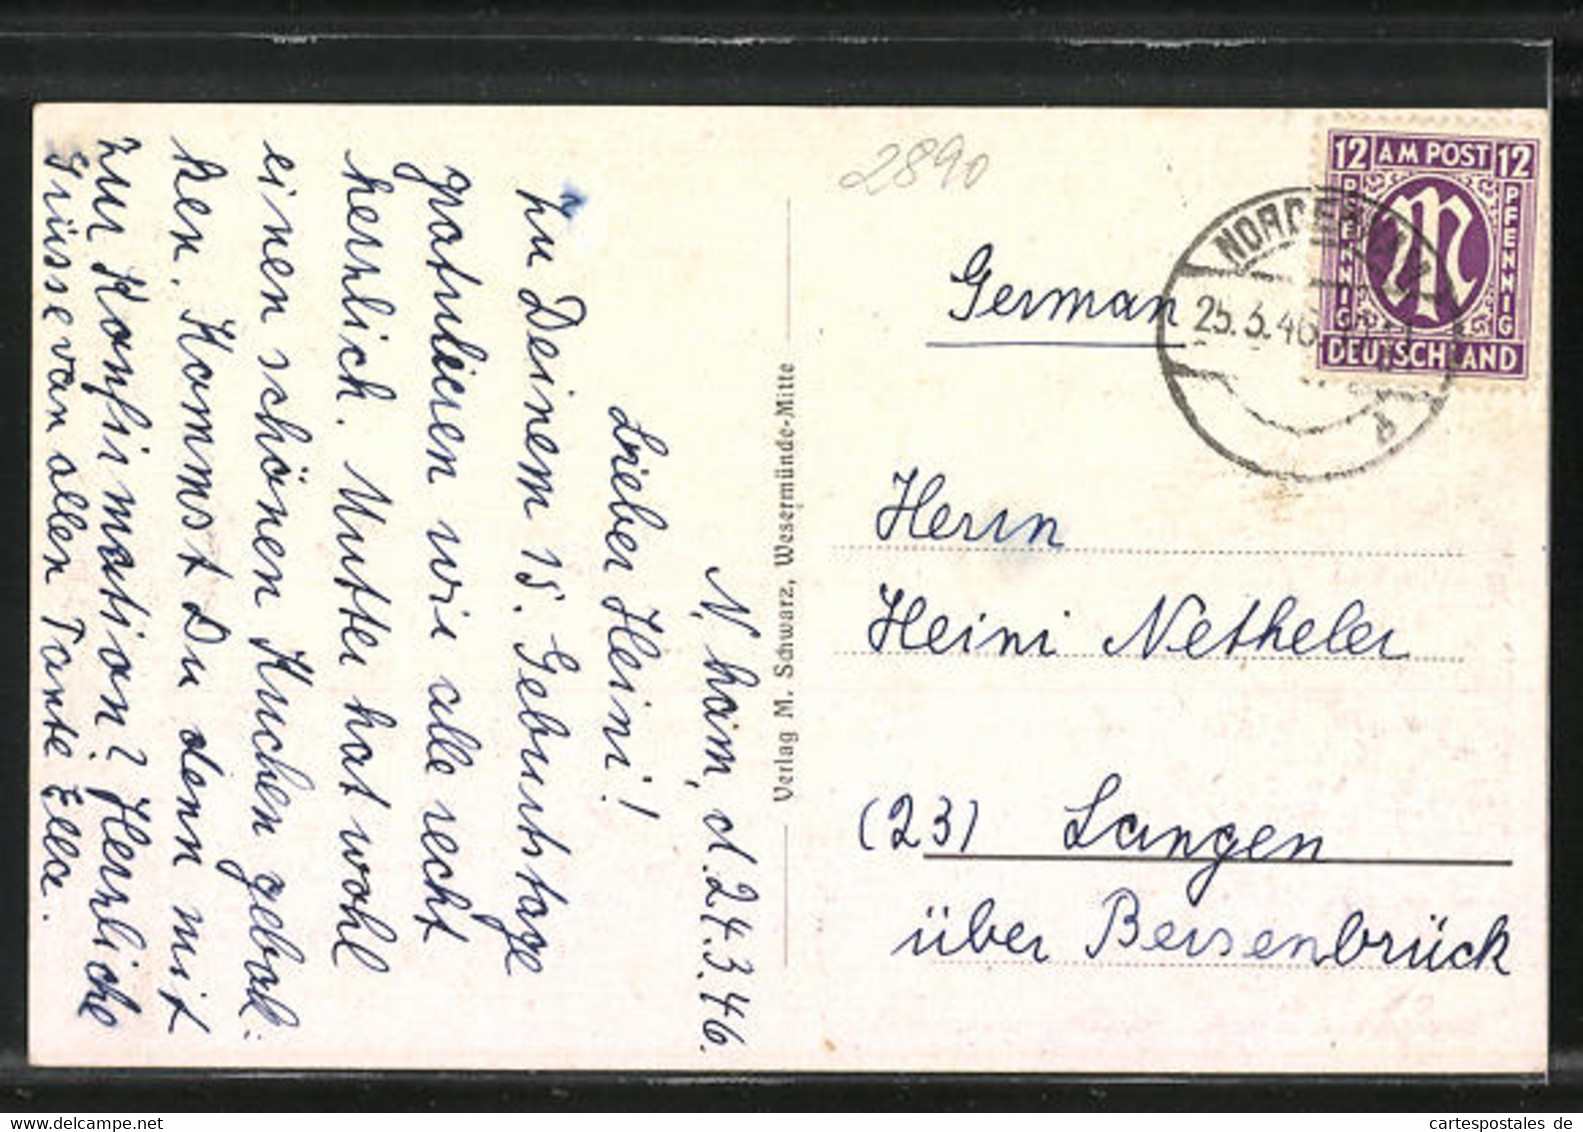 N.ham, d. 24.3.46.
Lieber Heini!
Zu Deinem 15. Geburtstage
gratulieren wir alle recht
herrlich. Mutter hat wohl
einen schönen Kuchen gebak:
ken. Kommst Du denn mit
zur Konfirmation? Herrliche
Grüsse von allen Tante Ella.
Verlag M. Schwarz, Wesermünde-Mitte
2890
12 AM POST 12
PFENNIG
PFENNIG
DEUTSCHLAND
NORDENHAM
25.3.46
German
Herrn
Heini Netheler
(23) Langen
über Bersenbrück
cartespostales de